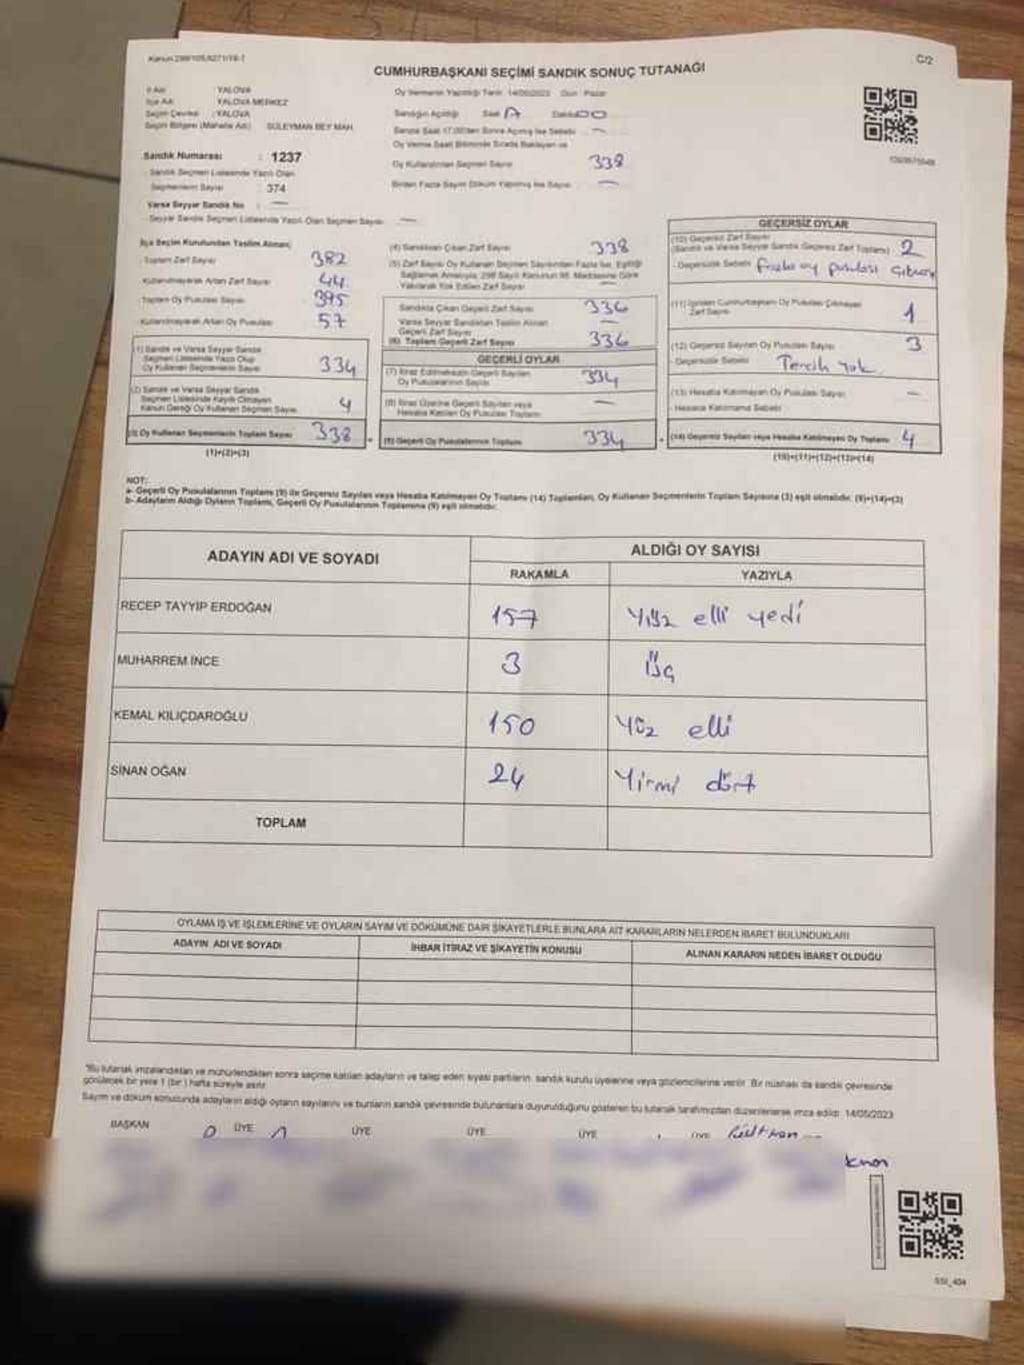 Kanun 298/105,6271/19-1
C/2
CUMHURBAŞKANI SEÇİMİ SANDIK SONUÇ TUTANAĞI
İl Adı : YALOVA
İlçe Adı : YALOVA MERKEZ
Seçim Çevresi : YALOVA
Seçim Bölgesi (Mahalle Adı) SÜLEYMAN BEY MAH.
Oy Vermenin Yapıldığı Tarih 14/05/2023 Gün : Pazar
Sandığın Açıldığı Saat Dakika 00
Sandık Saat 17:00'den Sonra Açılmış İse Sebebi —
Oy Verme Saati Bitiminde Sırada Bekleyen ve
Oy Kullandırılan Seçmen Sayısı 338
Birden Fazla Sayım Döküm Yapılmış İse Sayısı —
Sandık Numarası : 1237
Sandık Seçmen Listesinde Yazılı Olan
Seçmenlerin Sayısı : 374
Varsa Seyyar Sandık No : —
- Seyyar Sandık Seçmen Listesinde Yazılı Olan Seçmen Sayısı —
İlçe Seçim Kurulundan Teslim Alınan;
- Toplam Zarf Sayısı 382
- Kullanılmayarak Artan Zarf Sayısı 44
- Toplam Oy Pusulası Sayısı 395
- Kullanılmayarak Artan Oy Pusulası 57
(1) Sandık ve Varsa Seyyar Sandık
Seçmen Listesinde Yazılı Olup
Oy Kullanan Seçmenlerin Sayısı 334
(2) Sandık ve Varsa Seyyar Sandık
Seçmen Listesinde Kayıtlı Olmayan
Kanun Gereği Oy Kullanan Seçmen Sayısı 4
(3) Oy Kullanan Seçmenlerin Toplam Sayısı 338
(1)+(2)=(3)
(4) Sandıktan Çıkan Zarf Sayısı 338
(5) Zarf Sayısı Oy Kullanan Seçmen Sayısından Fazla İse, Eşitliği
Sağlamak Amacıyla, 298 Sayılı Kanunun 98. Maddesine Göre
Yakılarak Yok Edilen Zarf Sayısı —
Sandıkta Çıkan Geçerli Zarf Sayısı 336
Varsa Seyyar Sandıktan Teslim Alınan
Geçerli Zarf Sayısı —
(6) Toplam Geçerli Zarf Sayısı 336
GEÇERLİ OYLAR
(7) İtiraz Edilmeksizin Geçerli Sayılan
Oy Pusulalarının Sayısı 334
(8) İtiraz Üzerine Geçerli Sayılan veya
Hesaba Katılan Oy Pusulaları Toplamı —
(9) Geçerli Oy Pusulalarının Toplamı 334
GEÇERSİZ OYLAR
(10) Geçersiz Zarf Sayısı
(Sandık ve Varsa Seyyar Sandık Geçersiz Zarf Toplamı) 2
- Geçersizlik Sebebi fazla oy pusulası
(11) İçinden Cumhurbaşkanı Oy Pusulası Çıkmayan
Zarf Sayısı 1
(12) Geçersiz Sayılan Oy Pusulası Sayısı 3
- Geçersizlik Sebebi Tercih yok.
(13) Hesaba Katılmayan Oy Pusulası Sayısı —
- Hesaba Katılmama Sebebi
(14) Geçersiz Sayılan veya Hesaba Katılmayan Oy Toplamı 4
(10)+(11)+(12)+(13)=(14)
NOT:
a- Geçerli Oy Pusulalarının Toplamı (9) ile Geçersiz Sayılan veya Hesaba Katılmayan Oy Toplamı (14) Toplamları, Oy Kullanan Seçmenlerin Toplam Sayısına (3) eşit olmalıdır. (9)+(14)=(3)
b- Adayların Aldığı Oyların Toplamı, Geçerli Oy Pusulalarının Toplamına (9) eşit olmalıdır.
ADAYIN ADI VE SOYADI
ALDIĞI OY SAYISI
RAKAMLA YAZIYLA
RECEP TAYYİP ERDOĞAN 157 Yüz elli yedi
MUHARREM İNCE 3 Üç
KEMAL KILIÇDAROĞLU 150 Yüz elli
SİNAN OĞAN 24 Yirmi dört
TOPLAM
OYLAMA İŞ VE İŞLEMLERİNE VE OYLARIN SAYIM VE DÖKÜMÜNE DAİR ŞİKAYETLERLE BUNLARA AİT KARARLARIN NELERDEN İBARET BULUNDUKLARI
ADAYIN ADI VE SOYADI İHBAR İTİRAZ VE ŞİKAYETİN KONUSU ALINAN KARARIN NEDEN İBARET OLDUĞU
*Bu tutanak imzalandıktan ve mühürlendikten sonra seçime katılan adayların ve talep eden siyasi partilerin, sandık kurulu üyelerine veya gözlemcilerine verilir. Bir nüshası da sandık çevresinde
görülecek bir yere 1 (bir) hafta süreyle asılır.
Sayım ve döküm sonucunda adayların aldığı oyların sayılarını ve bunların sandık çevresinde bulunanlara duyurulduğunu gösteren bu tutanak tarafımızdan düzenlenerek imza edildi. 14/05/2023
BAŞKAN ÜYE ÜYE ÜYE ÜYE ÜYE
SSI_404